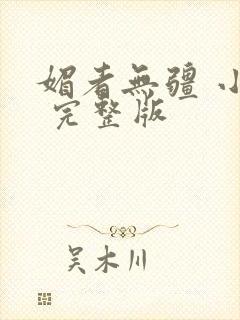 媚者無疆 小
完整版
吴木川